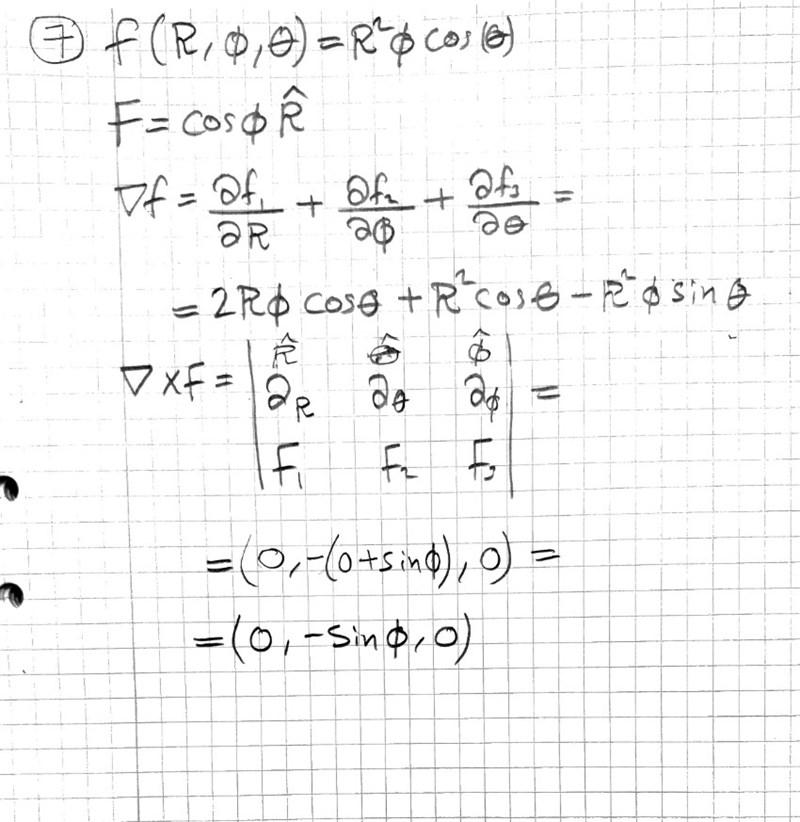 ⑦ f(R, φ, θ) = R²φ cos(θ)
F = cosφ R̂
∇f = ∂f₁/∂R + ∂f₂/∂φ + ∂f₃/∂θ =
= 2Rφ cosθ + R²cosθ − R²φ sinθ
∇×F = | R̂ θ̂ φ̂ |
| ∂_R ∂_θ ∂_φ | =
| F₁ F₂ F₃ |
= (0, −(0+sinφ), 0) =
= (0, −sinφ, 0)